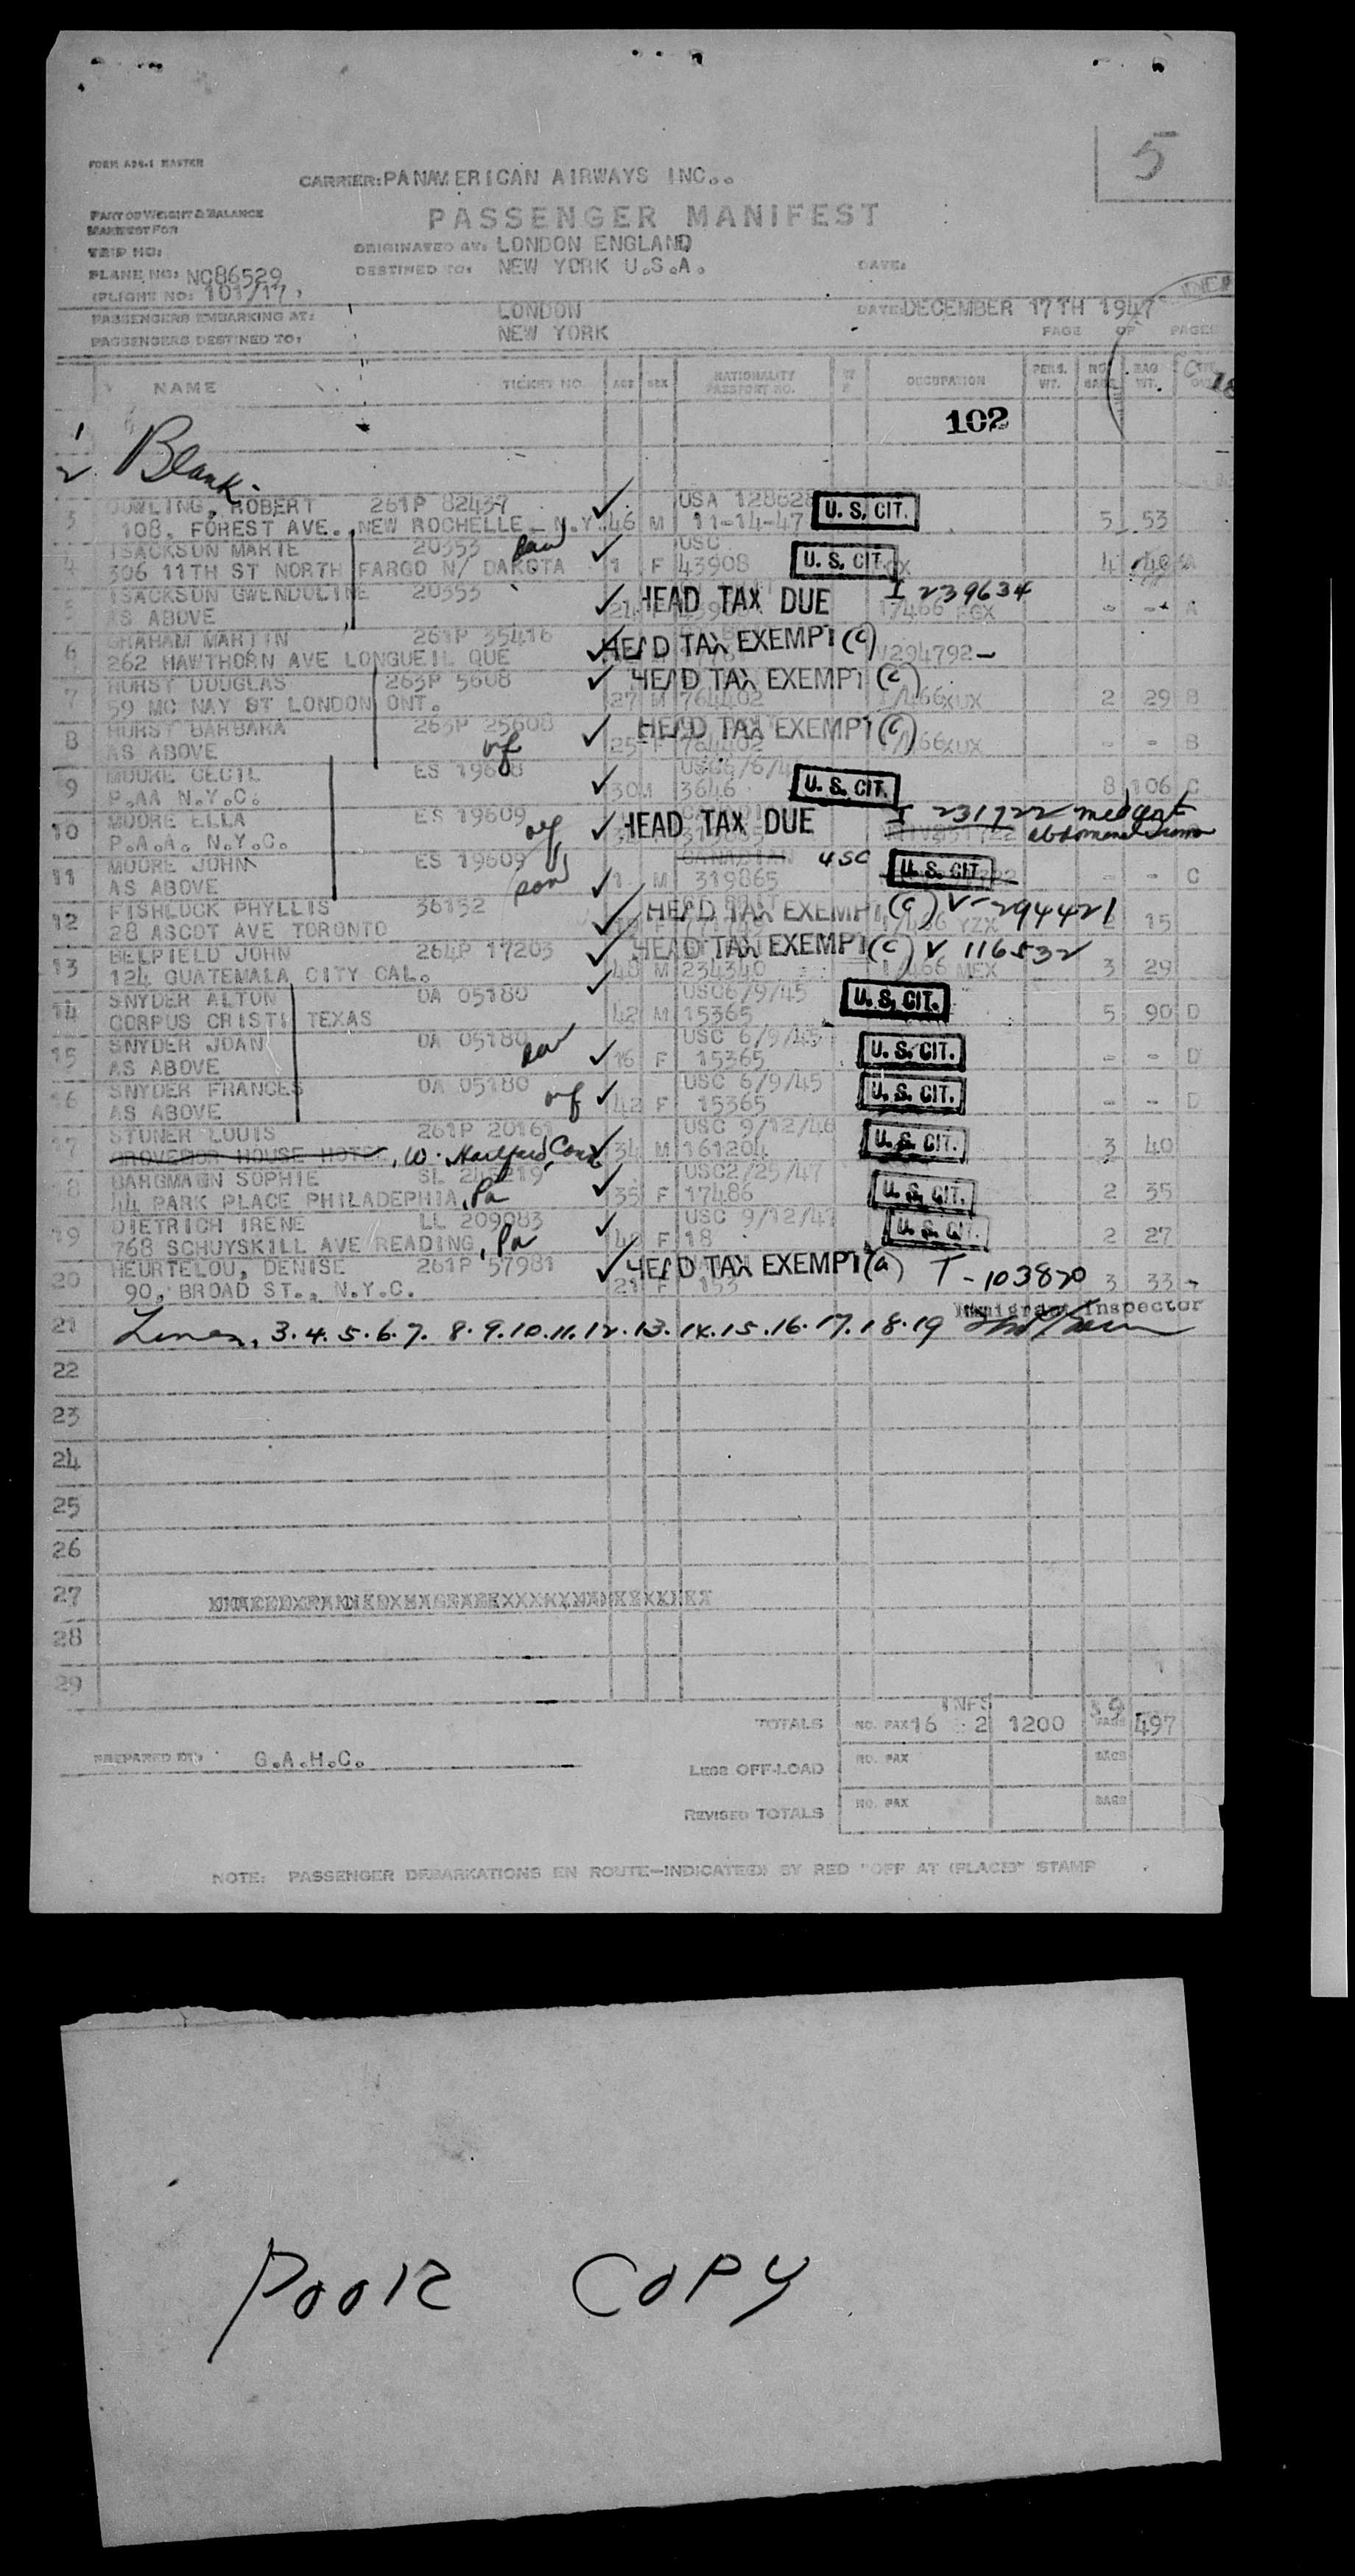 5
FORM A26-1 MASTER
CARRIER: PANAMERICAN AIRWAYS INC..
PART OF WEIGHT & BALANCE
MANIFEST FOR
PASSENGER MANIFEST
TRIP NO:
ORIGINATED AT: LONDON ENGLAND
PLANE NO: NC86529
DESTINED TO: NEW YORK U.S.A. DATE:
(FLIGHT NO: 101/17)
PASSENGERS EMBARKING AT: LONDON DATE: DECEMBER 17TH 1947
PASSENGERS DESTINED TO: NEW YORK PAGE OF PAGES
NAME TICKET NO. AGE SEX NATIONALITY PASSPORT NO. OCCUPATION PERS. WT. NO. BAGS BAG WT.
102
1
2 Blank.
3 DOWLING, ROBERT 261P 82437 USA 128628 U. S. CIT.
108, FOREST AVE., NEW ROCHELLE - N.Y. 46 M 11-14-47 5 53
4 ISACKSON MARIE 20353 USC U. S. CIT.
306 11TH ST NORTH FARGO N/ DAKOTA 1 F 43908 4 A
5 ISACKSON GWENDOLINE 20353 HEAD TAX DUE I 239634
AS ABOVE - - A
6 GRAHAM MARTIN 261P 35416 HEAD TAX EXEMPT (C)
262 HAWTHORN AVE LONGUEIL QUE V294792-
7 HURST DOUGLAS 263P 5608 HEAD TAX EXEMPT (C)
59 MC NAY ST LONDON ONT. 27 M 764402 2 29 B
8 HURST BARBARA 263P 25608 HEAD TAX EXEMPT (C)
AS ABOVE wf 25 F 764402 - - B
9 MOORE CECIL ES 19608 U. S. CIT.
P.AA N.Y.C. 30 M 3646 8 106 C
10 MOORE ELLA ES 19609 wf HEAD TAX DUE I 231722 med cert
P.A.A. N.Y.C. abdomenal
11 MOORE JOHN ES 19609 CANADIAN USC U. S. CIT.
AS ABOVE son 1 M 319865 - - C
12 FISHLOCK PHYLLIS 36132 HEAD TAX EXEMPT (C) V-294421
28 ASCOT AVE TORONTO 15
13 BELFIELD JOHN 264P 17203 HEAD TAX EXEMPT (C) V 116532
124 GUATEMALA CITY CAL. 48 M 234340 3 29
14 SNYDER ALTON OA 05180 USC6/9/45 U. S. CIT.
CORPUS CRISTI TEXAS 42 M 15365 5 90 D
15 SNYDER JOAN OA 05180 USC 6/9/45 U. S. CIT.
AS ABOVE 16 F 15365 - - D
16 SNYDER FRANCES OA 05180 wf USC 6/9/45 U. S. CIT.
AS ABOVE 42 F 15365 - - D
17 STONER LOUIS 261P 20161 USC 9/12/46 U. S. CIT.
GROVENOR HOUSE HOTEL, W. Hartford, Conn 34 M 161204 3 40
18 BARGMANN SOPHIE USC2/25/47 U. S. CIT.
44 PARK PLACE PHILADEPHIA, Pa 35 F 17486 2 35
19 DIETRICH IRENE LL 209083 USC 9/12/47 U. S. CIT.
768 SCHUYSKILL AVE READING, Pa F 18 2 27
20 HEURTELOU, DENISE 261P 57981 HEAD TAX EXEMPT (a) T-103870
90, BROAD ST., N.Y.C. 21 F 153 3 33
Immigrant Inspector
21 Lines, 3.4.5.6.7. 8.9.10.11.12.13.14.15.16.17.18.19
22
23
24
25
26
27
28
29
TOTALS NO. PAX 16 : 2 INFS 1200 BAGS 497
PREPARED BY: G.A.H.C.
LESS OFF-LOAD NO. PAX BAGS
REVISED TOTALS NO. PAX BAGS
NOTE: PASSENGER DEBARKATIONS EN ROUTE—INDICATED BY RED "OFF AT (PLACE)" STAMP
POOR COPY